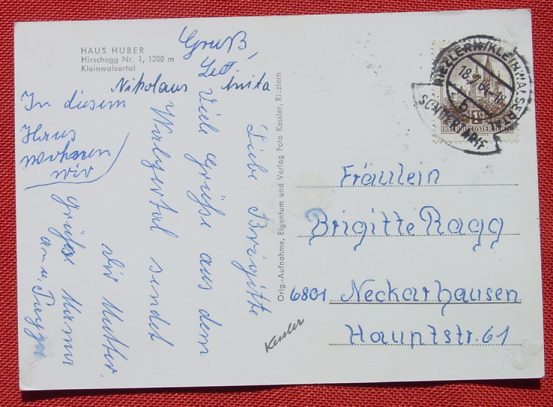 HAUS HUBER
Hirschegg Nr. 1, 1200 m
Kleinwalsertal
Gruß,
Nikolaus
Anita
In diesem
Haus
wohnen
wir
Liebe Brigitte
Viele Grüße aus dem
Walsertal sendet
Dir Mutter.
Grüße Mama
Orig.-Aufnahme, Eigentum und Verlag Foto Kessler, Riezlern
Kessler
RIEZLERN/KLEINWALSERTAL
SONDERTARIF
Fräulein
Brigitte Ragg
6801 Neckarhausen
Hauptstr. 61